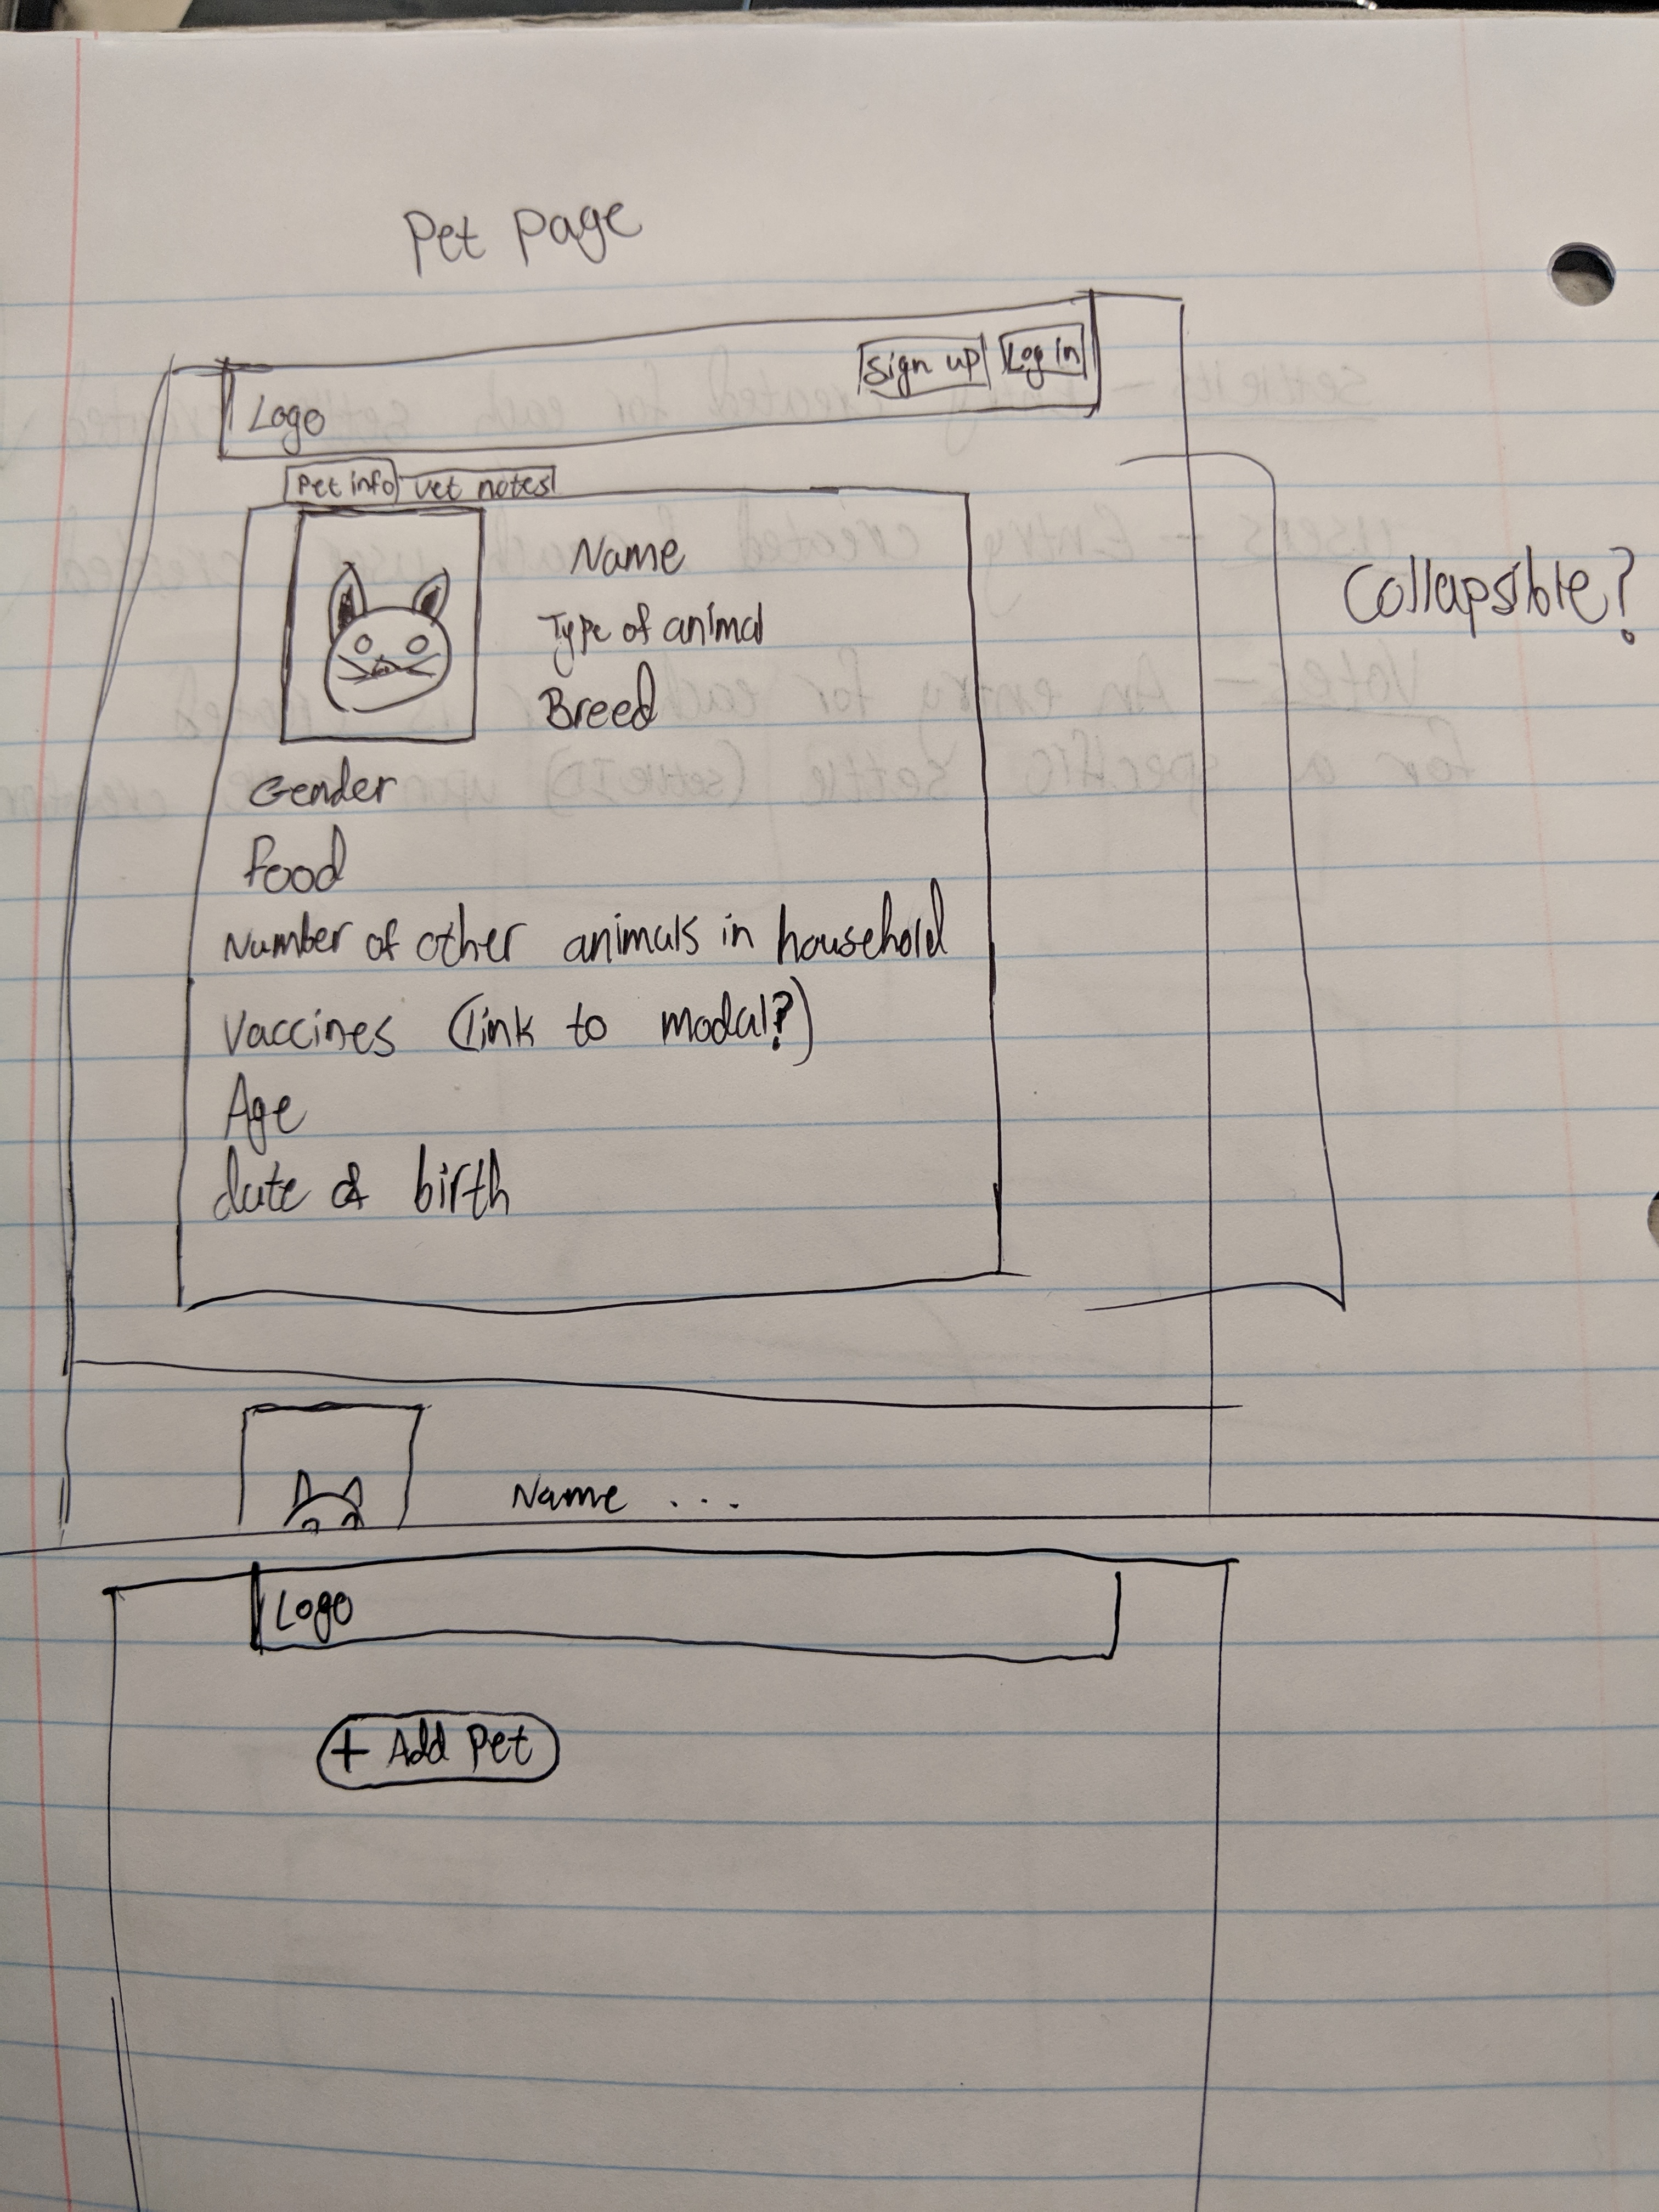 Pet Page
Sign up Log in
Logo
Pet info vet notes
Name
Collapsible?
Type of animal
Breed
Gender
Food
Number of other animals in household
Vaccines (link to modal?)
Age
date of birth
Name ...
Logo
+ Add Pet